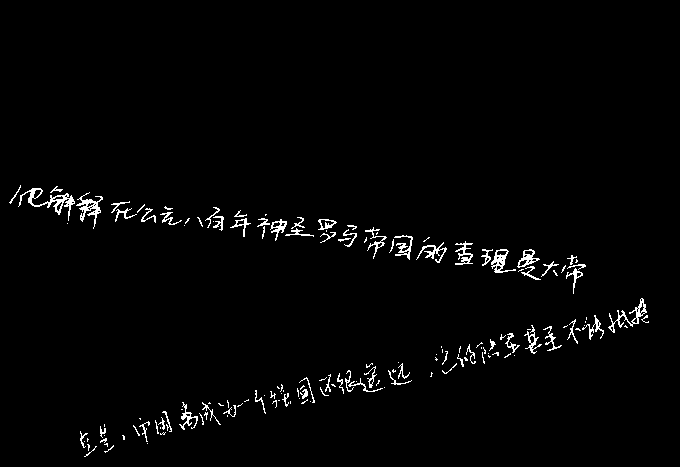 他解释在公元八百年神圣罗马帝国的查理曼大帝
但是，中国离成为一个强国还很遥远，它的陆军甚至不能抵挡